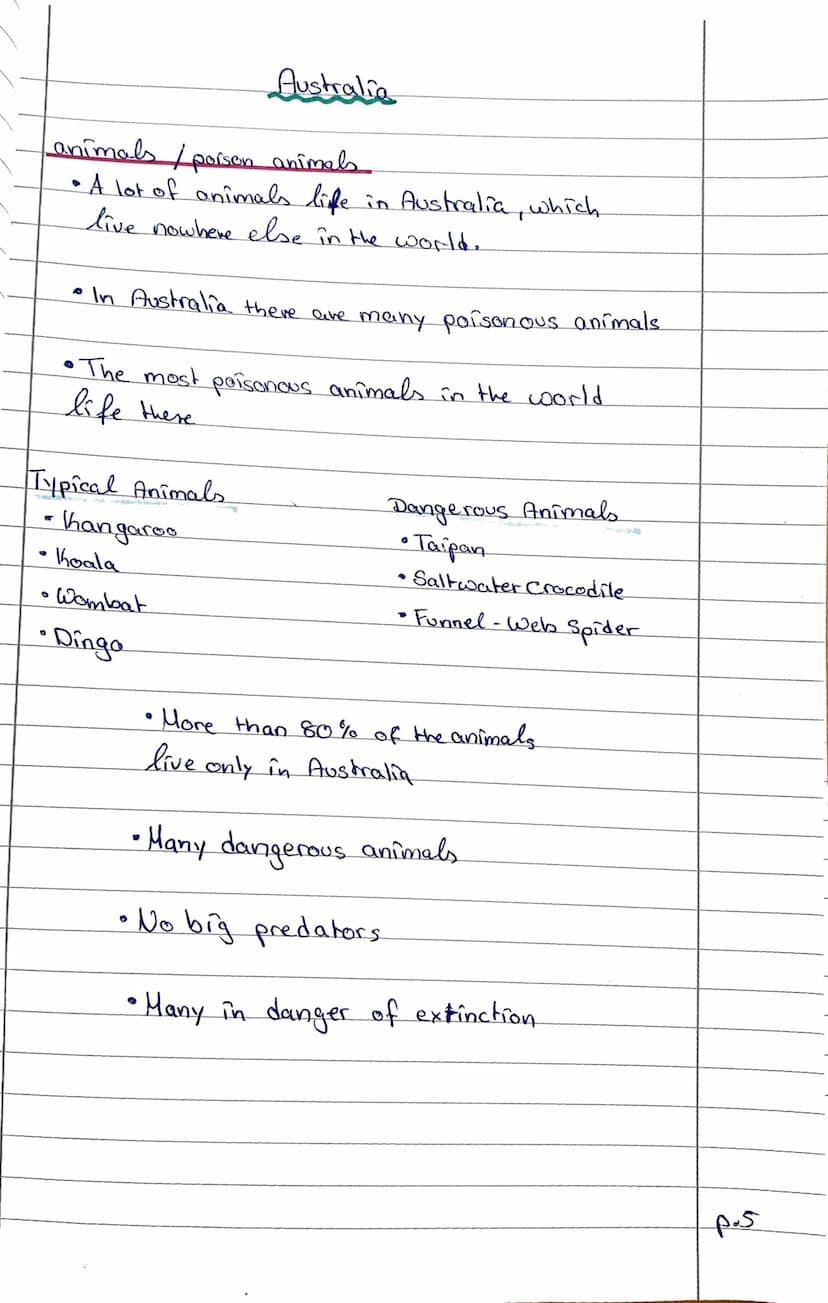 Australia
animals / poison animals
• A lot of animals life in Australia, which
live nowhere else in the world.
• In Australia there are many poisonous animals
• The most poisonous animals in the world
life there
Typical Animals
- Khangaroo
• Khoala
• Wombat
• Dingo
Dangerous Animals
• Taipan
• Saltwater Crocodile
• Funnel-Web Spider
• More than 80% of the animals
live only in Australia
• Many dangerous animals
• No big predators
• Many in danger of extinction
p.5